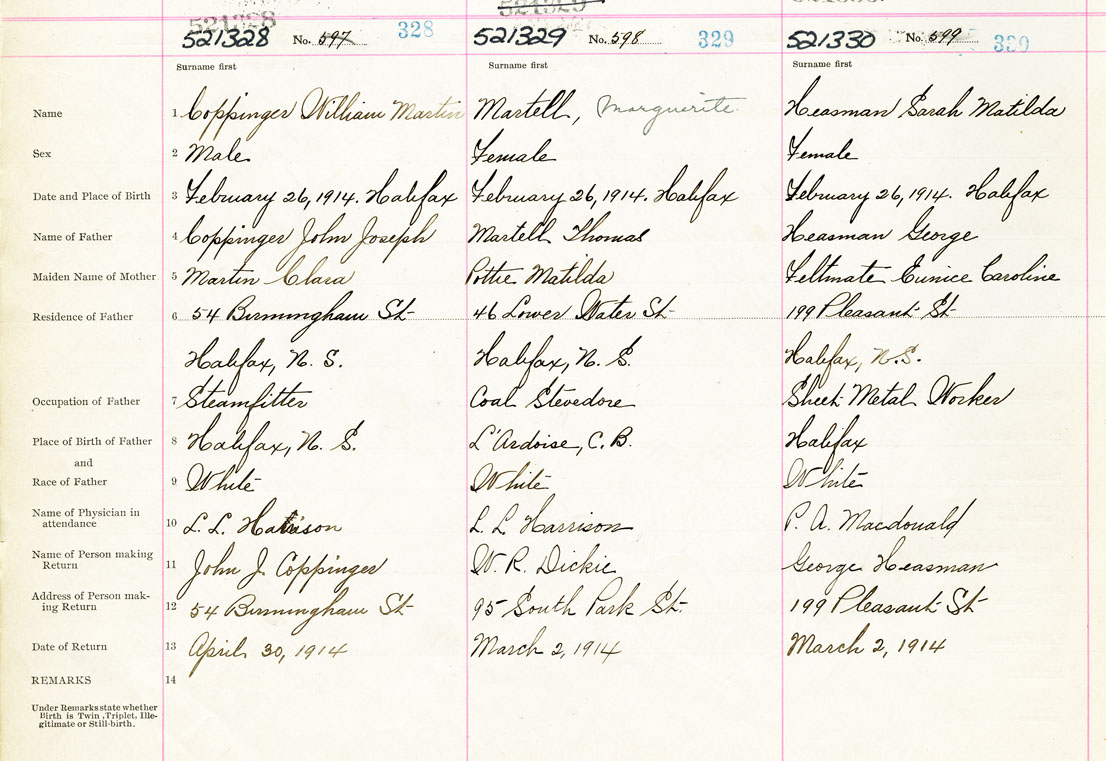 521328
521329
521328 No. 597 328
521329 No. 598 329
521330 No. 599 330
Surname first Surname first Surname first
Name 1 Coppinger William Martin Martell, Marguerite Heasman Sarah Matilda
Sex 2 Male Female Female
Date and Place of Birth 3 February 26, 1914. Halifax February 26, 1914. Halifax February 26, 1914. Halifax
Name of Father 4 Coppinger John Joseph Martell Thomas Heasman George
Maiden Name of Mother 5 Martin Clara Pottie Matilda Feltmate Eunice Caroline
Residence of Father 6 54 Birmingham St 46 Lower Water St 199 Pleasant St
Halifax, N. S. Halifax, N. S. Halifax, N.S.
Occupation of Father 7 Steamfitter Coal Stevedore Sheet Metal Worker
Place of Birth of Father 8 Halifax, N. S. L'Ardoise, C. B. Halifax
and
Race of Father 9 White White White
Name of Physician in
attendance 10 L. L. Harrison L. L. Harrison P. A. Macdonald
Name of Person making
Return 11 John J. Coppinger W. R. Dickie George Heasman
Address of Person mak-
ing Return 12 54 Birmingham St 95 South Park St. 199 Pleasant St
Date of Return 13 April 30, 1914 March 2, 1914 March 2, 1914
REMARKS 14
Under Remarks state whether
Birth is Twin, Triplet, Ille-
gitimate or Still-birth.